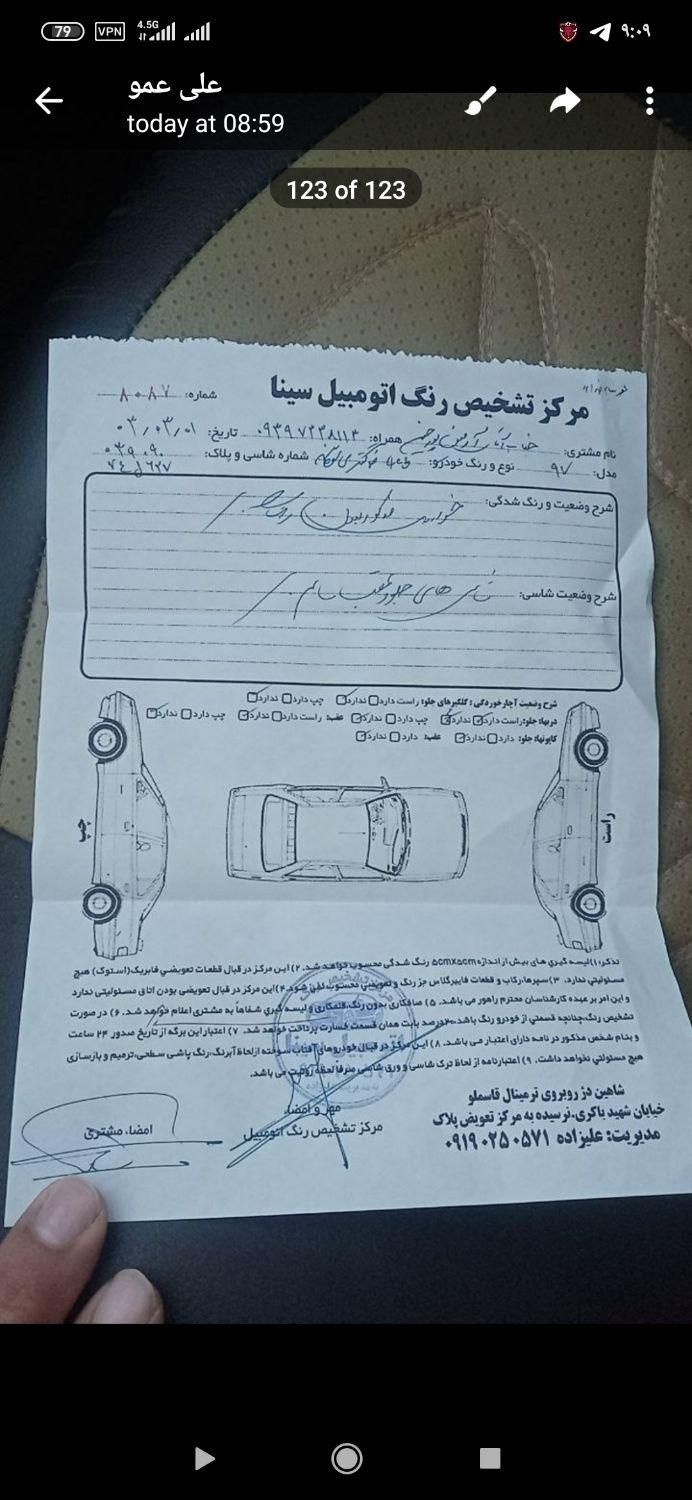 79 VPN 4.5G ۹:۰۹
علی عمو
today at 08:59
123 of 123
مرکز تشخیص رنگ اتومبیل سینا
شماره: ۸۰۸۷
نام مشتری: جناب آقای همراه: تاریخ: ۰۳/۰۳/۰۱
مدل: ۹۷ نوع و رنگ خودرو: شماره شاسی و پلاک:
شرح وضعیت و رنگ شدگی: خودروی مذکور بدون رنگ
شرح وضعیت شاسی: شاسی های جلو و عقب سالم
شرح وضعیت آچارخوردگی: گلگیرهای جلو: راست دارد ندارد چپ دارد ندارد
دربها: جلو: راست دارد ندارد چپ دارد ندارد عقب: راست دارد ندارد چپ دارد ندارد
کاپوتها: جلو: دارد ندارد عقب: دارد ندارد
چپ
راست
تذکر: ۱) لیسه گیری های بیش از اندازه 5cmx5cm رنگ شدگی محسوب خواهد شد. ۲) این مرکز در قبال قطعات تعویضی فابریک (استوک) هیچ
مسئولیتی ندارد. ۳) سپرها، رکاب و قطعات فایبرگلاس جز رنگ و تعویضی محسوب نمی شود. ۴) این مرکز در قبال تعویضی بودن اتاق مسئولیتی ندارد
و این امر بر عهده کارشناسان محترم راهور می باشد. ۵) صافکاری بدون رنگ، قلمکاری و لیسه گیری شفاهاً به مشتری اعلام خواهد شد. ۶) در صورت
تشخیص رنگ، چنانچه قسمتی از خودرو رنگ باشد، درصد بابت همان قسمت خسارت پرداخت خواهد شد. ۷) اعتبار این برگه از تاریخ صدور ۲۴ ساعت
و بنام شخص مذکور در نامه دارای اعتبار می باشد. ۸) این مرکز در قبال خودروهای آفتاب سوخته از لحاظ آبرنگ، رنگ پاشی سطحی، ترمیم و بازسازی
هیچ مسئولتی نخواهد داشت. ۹) اعتبارنامه از لحاظ ترک شاسی و ورق شاسی صرفا لحظه رویت می باشد.
شاهین دژ روبروی ترمینال قاسملو
خیابان شهید باکری، نرسیده به مرکز تعویض پلاک
مدیریت: علیزاده ۰۹۱۹۰۲۵۰۵۷۱
مهر و امضاء
مرکز تشخیص رنگ اتومبیل
امضاء مشتری